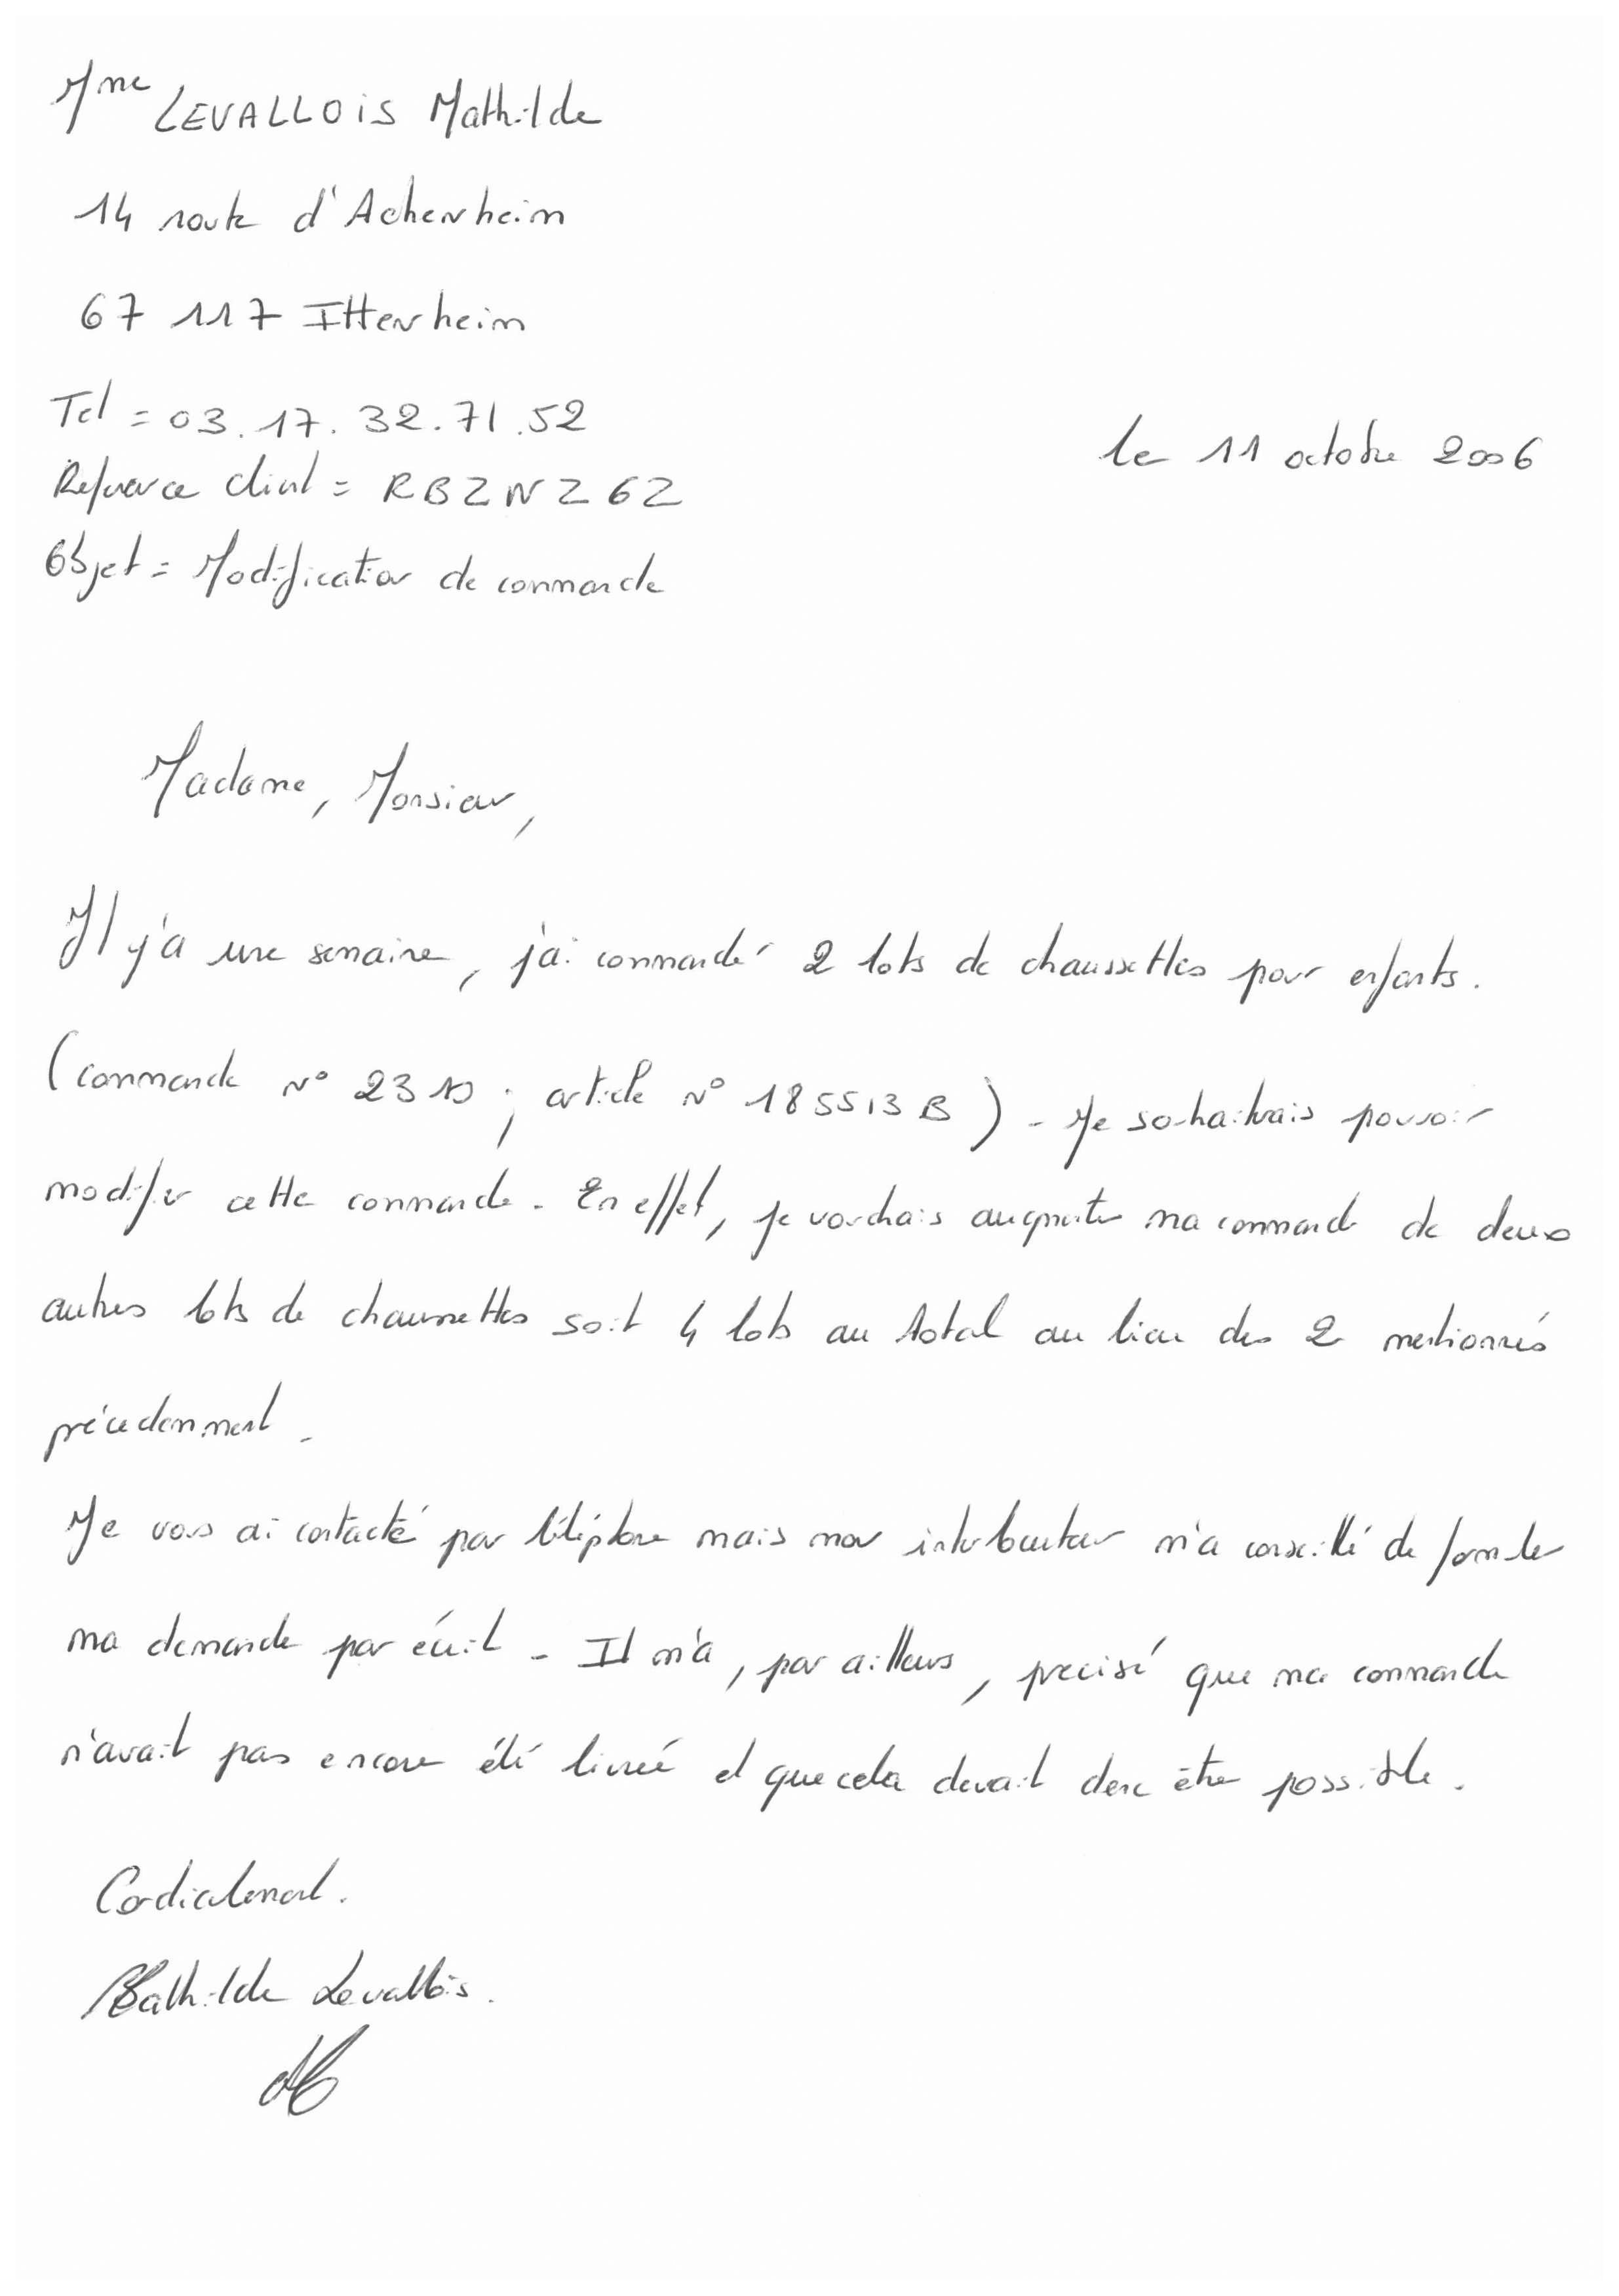 Mme LEVALLOIS Mathilde
14 route d'Achenheim
67 117 Ittenheim
Tel = 03.17.32.71.52
le 11 octobre 2006
Reference client = RBZNZ62
Objet = Modification de commande
Madame, Monsieur,
Il y'a une semaine, j'ai commandé 2 lots de chaussettes pour enfants.
(commande n° ; article n° 185513B). Je souhaiterais pouvoir
modifier cette commande. En effet, je voudrais augmenter ma commande de deux
autres lots de chaussettes soit 4 lots au total au lieu des 2 mentionnés
précedemment.
Je vous ai contacté par téléphone mais mon interlocuteur m'a conseillé de formuler
ma demande par écrit. Il m'a, par ailleurs, precisé que ma commande
n'avait pas encore été livrée et que cela devait donc être possible.
Cordialement.
Mathilde Levallois.